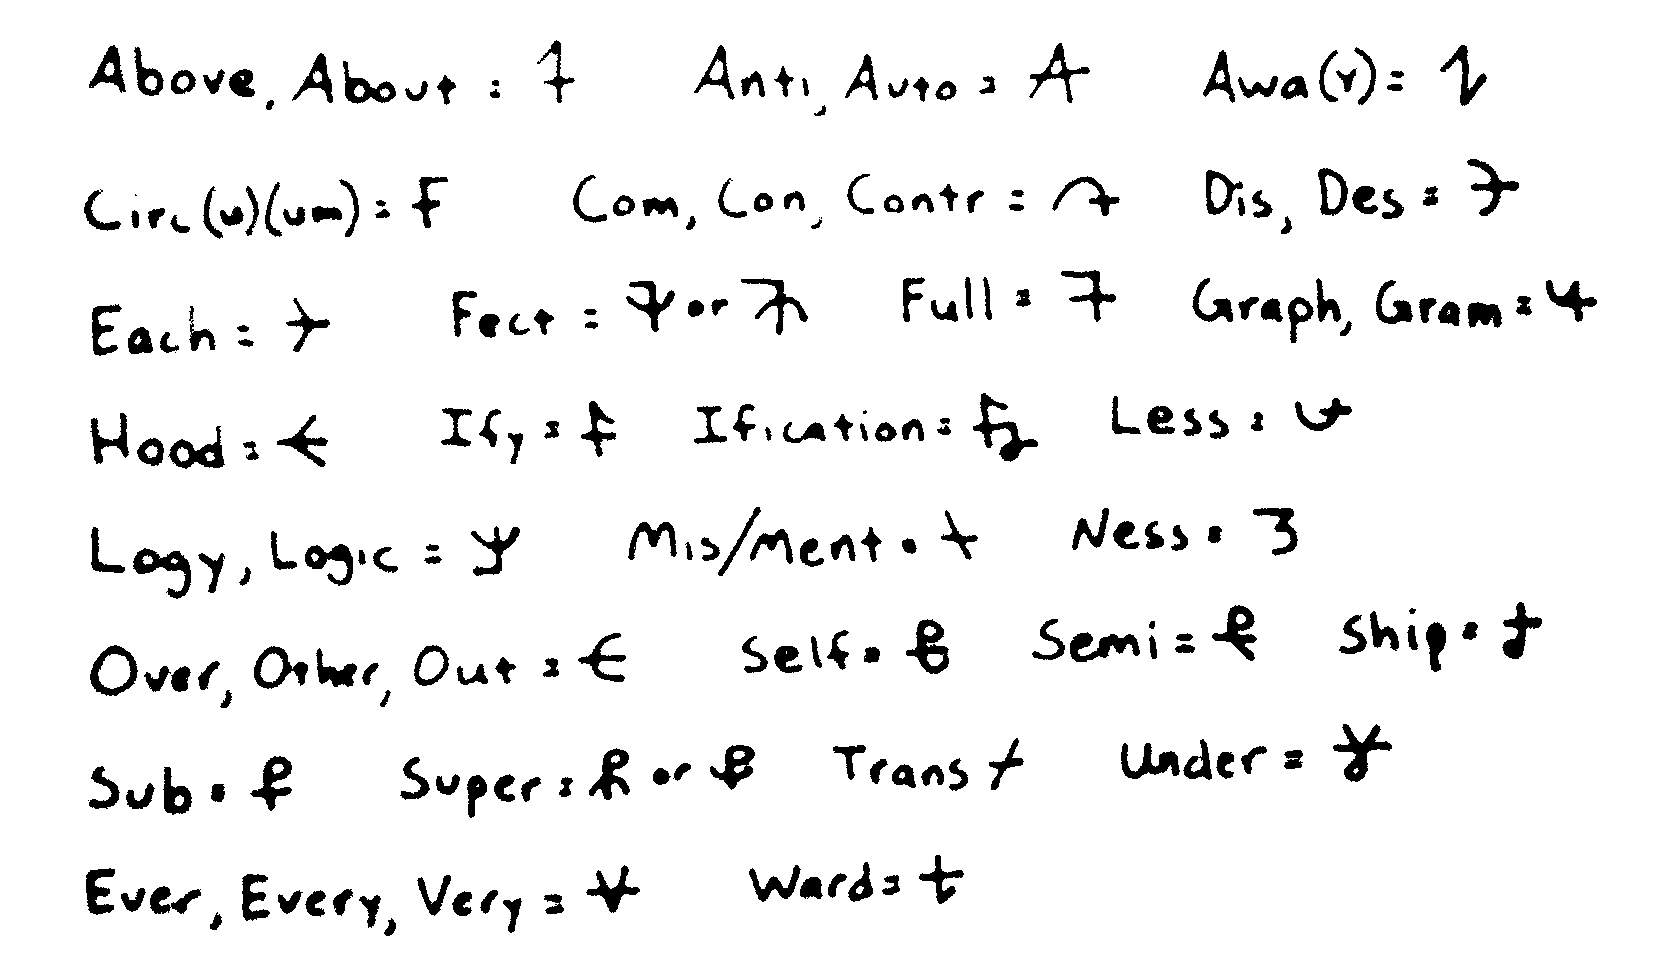 Above, About = Anti, Auto = Awa(r) =
Circ(u)(um) = Com, Con, Contr = Dis, Des =
Each = Fect = or Full = Graph, Gram =
Hood = Ify = Ification = Less =
Logy, Logic = Mis/Ment = Ness =
Over, Other, Out = Self = Semi = Ship =
Sub = Super = or Trans Under =
Ever, Every, Very = Ward =